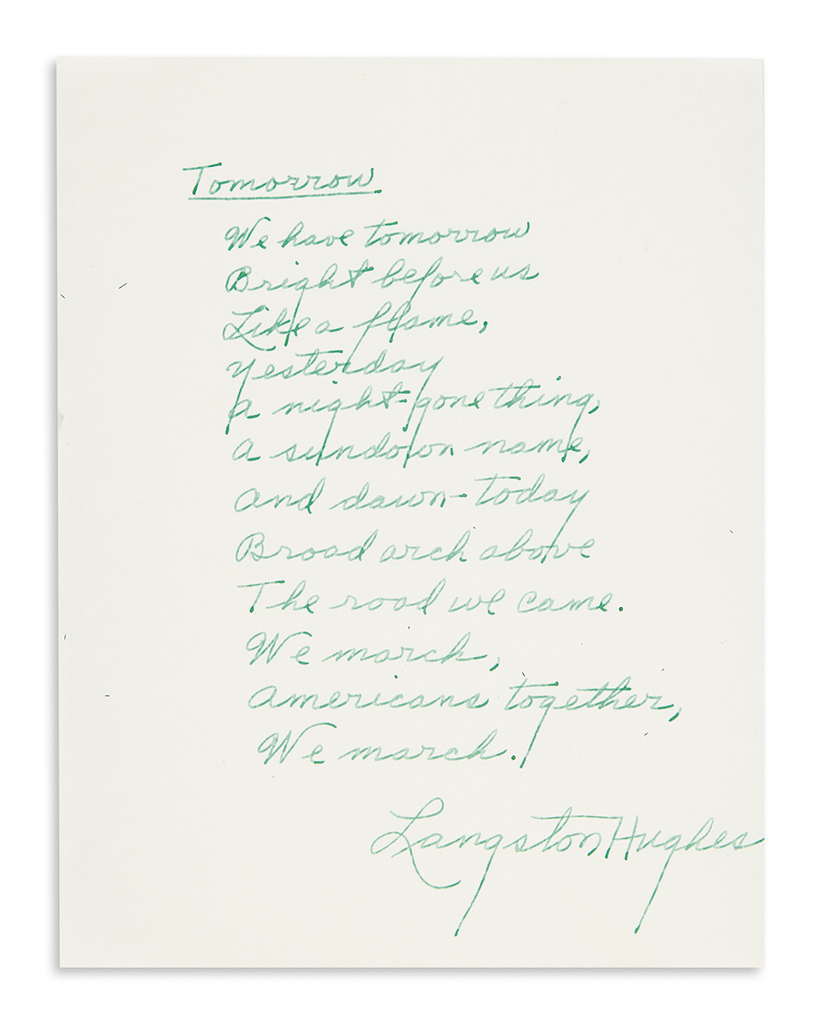 Tomorrow.
We have tomorrow
Bright before us
Like a flame,
yesterday
a night-gone thing,
a sundown name,
and dawn-today
Broad arch above
The road we came.
We march,
americans together,
We march.
Langston Hughes